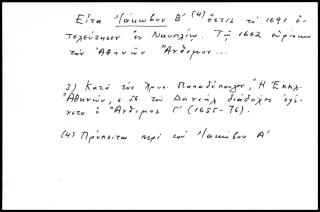 Εἶτα Ἰάκωβον Β' (4) ὅστις τὸ 1691 ἐ-
τελεύτησεν ἐν Ναυπλίῳ. Τῷ 1662 εὑρίσκω
τὸν Ἀθηνῶν Ἄνθιμον...
3) Κατὰ τὸν Χρυσ. Παπαδόπουλον, "Ἡ Ἐκκλ.
Ἀθηνῶν, σ. 56 τὸν Δανιὴλ διάδοχος ἐγέ-
νετο ὁ Ἄνθιμος Γ' (1655-76).
(4) Πρόκειται περὶ τοῦ Ἰακώβου Α'